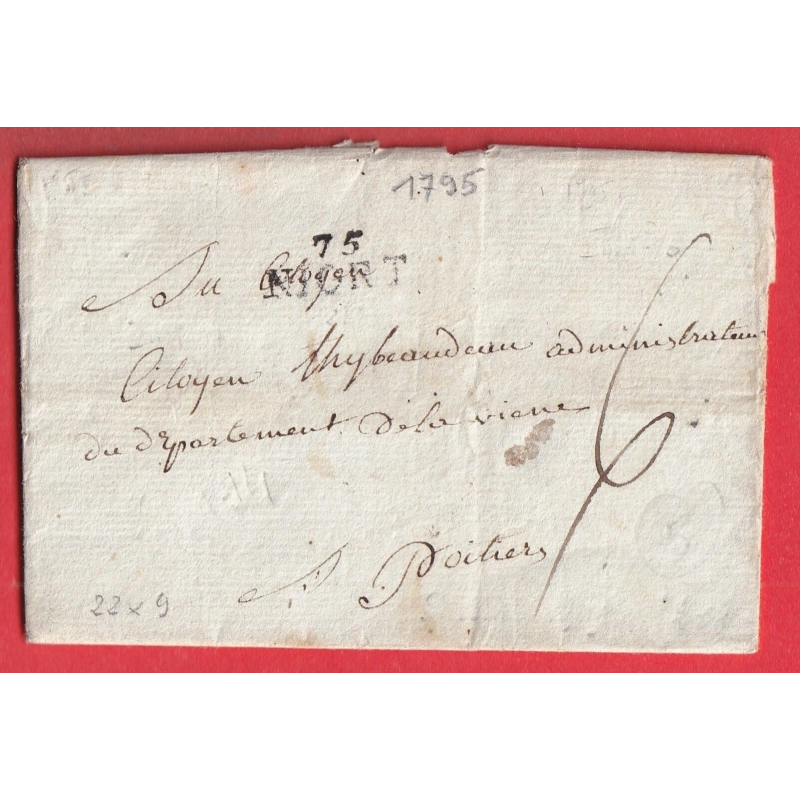 1795
75
NIORT
Au Citoyen
Citoyen thybeaudeau administrateur
du département de la viene
A Poitiers
22 x 9